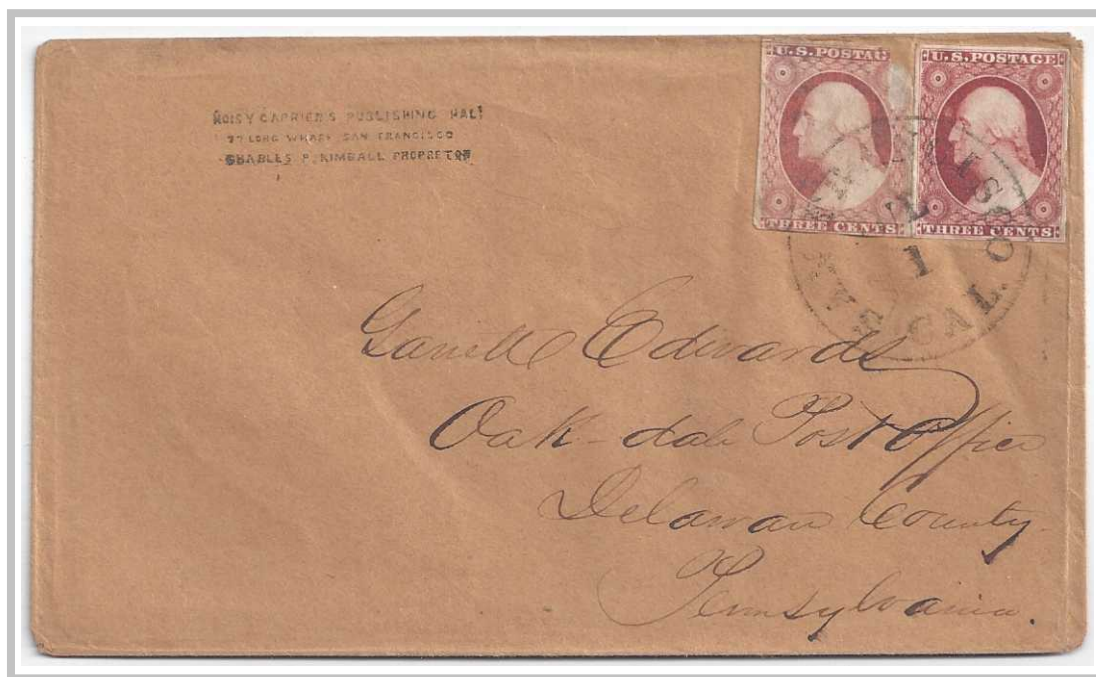 NOISY CARRIER'S PUBLISHING HALL
77 LONG WHARF SAN FRANCISCO
CHARLES P. KIMBALL PROPRETOR
U.S. POSTAG
THREE CENTS
U.S. POSTAGE
THREE CENTS
SAN FRANCISCO
1
CAL.
Garrett Edwards
Oak-dale Post Office
Delaware County
Pennsylvania.